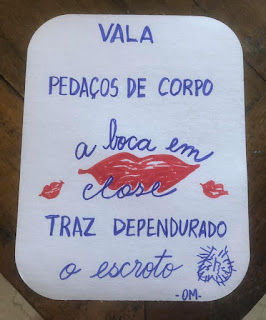 VALA
PEDAÇOS DE CORPO
a boca em
close
TRAZ DEPENDURADO
o escroto
-OM-